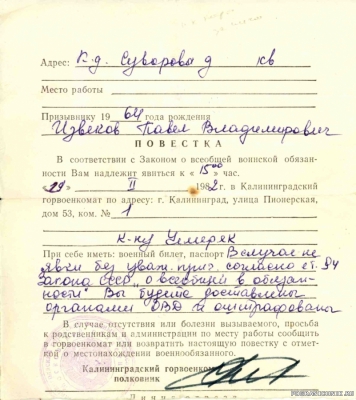 Адрес: К-д. Суворова д кв
Место работы
Призывнику 1964 года рождения
Извеков Павел Владимирович
ПОВЕСТКА
В соответствии с Законом о всеобщей воинской обязан-
ности Вам надлежит явиться к «15⁰⁰» час.
«29» II 1982 г. в Калининградский
горвоенкомат по адресу: г. Калининград, улица Пионерская,
дом 53, ком. № 1
к-ну
При себе иметь: военный билет, паспорт В случае не
явки без уваж. прич. согласно ст.
Закона СССР „о всеобщей в обязан-
ности" Вы будете доставлены
органами ОВД и оштрафованы
В случае, отсутствия или болезни вызываемого, просьба
к родственникам и администрации по месту работы сообщить
в горвоенкомат или возвратить настоящую повестку с отмет-
кой о местонахождении военнообязанного.
Калининградский горвоенком
полковник